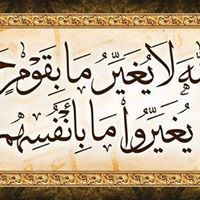 لَا يُغَيِّرُ مَا بِقَوْمٍ
يُغَيِّرُوا مَا بِأَنْفُسِهِمْ